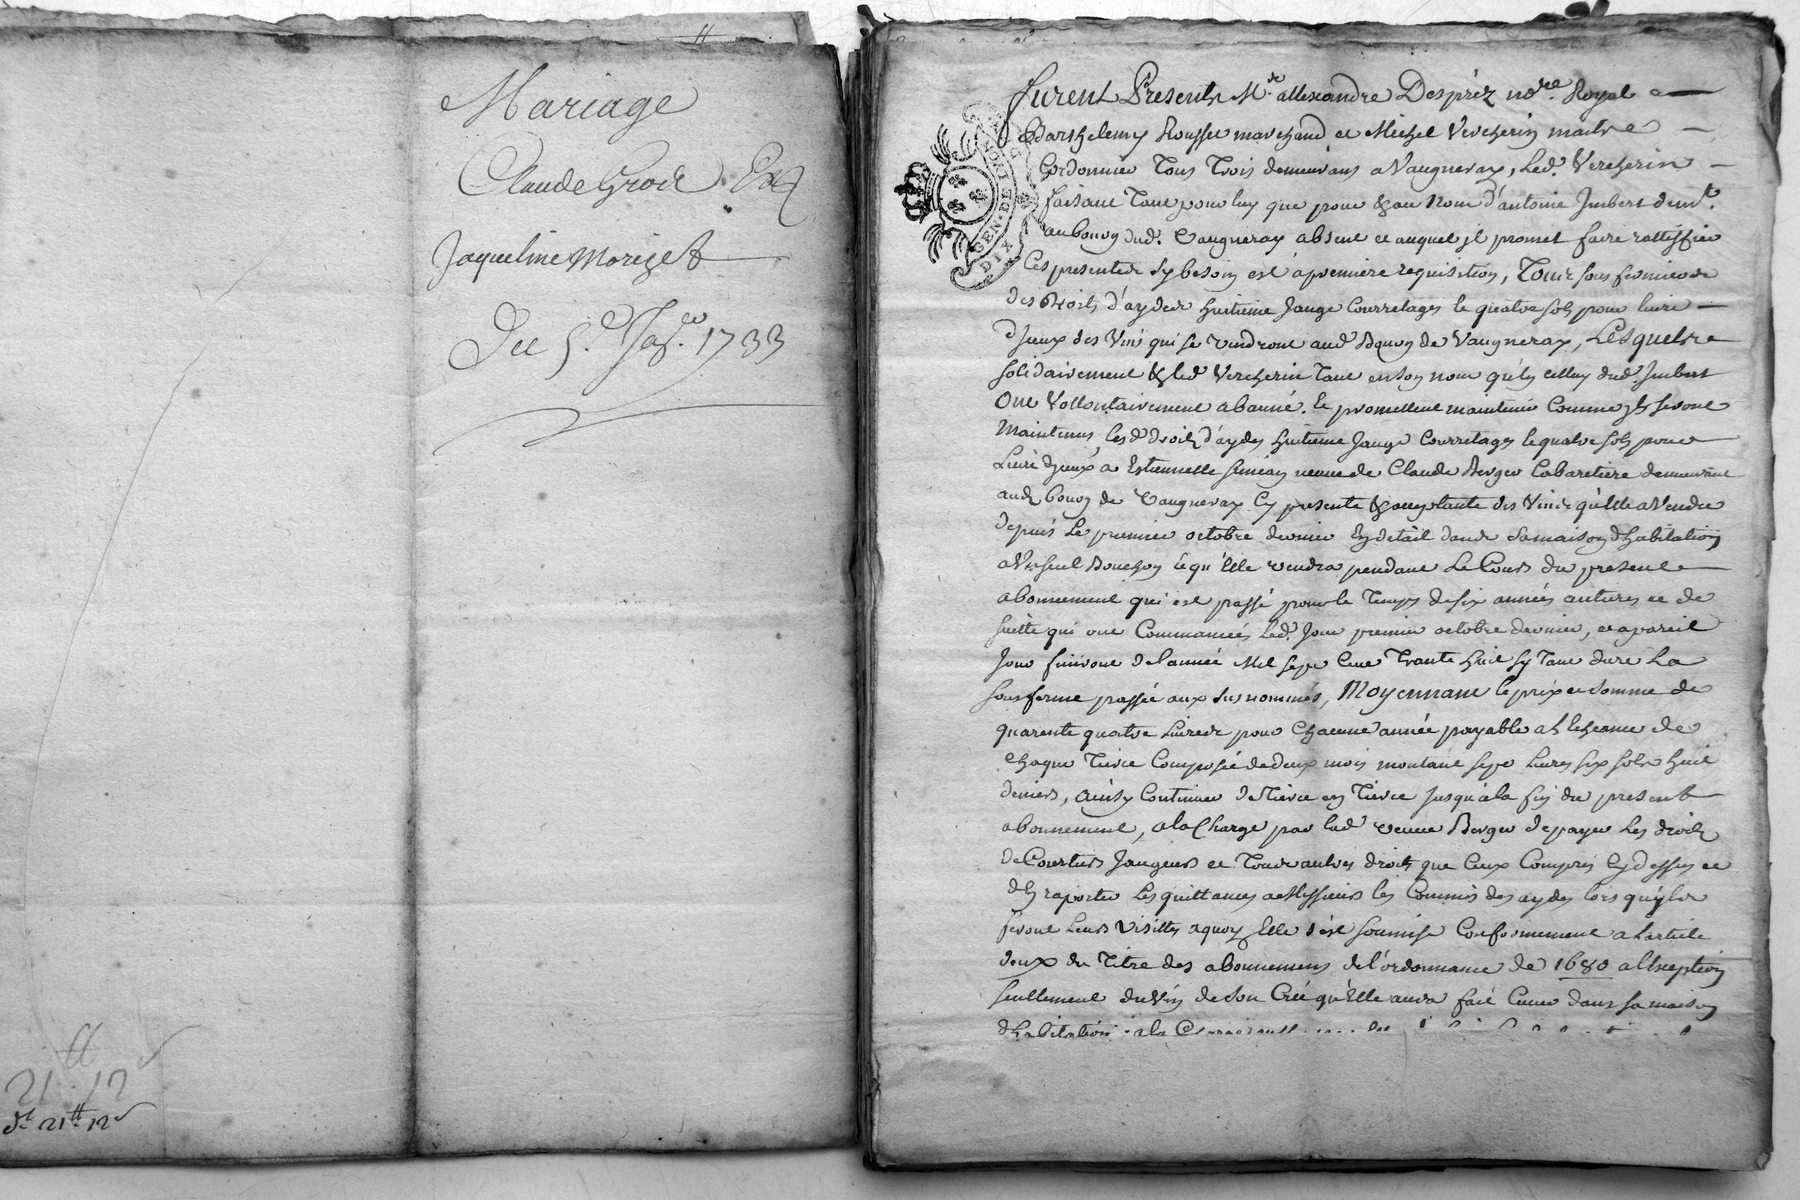 Mariage
Claude Grod Et
Jaqueline Morizet
Du 5.e 1733
21 12
d.t 21 tt 12 s
GEN. DE LION
DIX
furent Presents M.re allexandre Desprèz no.re Royal
Barthelemy Rousset marchand et Michel Vercherin maitre
Cordonnier Tous Trois demeurans a Vaugneray, Led. Vercherin
faisant Tant pour luy que pour & au Nom d'antoine Jmbert dem.t
au bourg dud. Vaugneray absent et auquel jl promet faire rattiffier
Ces presentes sy besoin est a premiere requisition, Tous sous fermiers
des Droits d'aydes huitieme Jauge Courretages le quatre sols pour livre
d'Jceux des Vins qui se vendront aud. Bourg de Vaugneray, Lesquels
solidairement & led. Vercherin Tant en son nom qu'en celluy dud. Jmbert
Ont Vollontairement abonné. Et promettent maintenir Comme jls seront
Maintenus, lesd. droits d'aydes huitieme Jauge Courretages le quatre sols pour
Livre d'jceux, a Estiennette simean veuve de Claude Berger Cabaretiere demeurant
aud. bourg de Vaugneray Cy presente & acceptante des Vins qu'elle a Vendu
depuis Le premier octobre dernier En detail dans sa maison d'habitation
a Un seul Bouchon & qu'Elle vendra pendant Le Cours du present
abonnement qui est passé pour le Temps de six années entieres et de
suitte qui ont Commancées Led. Jour premier octobre dernier, et a pareil
Jour finiront de l'année Mil sept Cent Trante huit sy Tant dure La
sous ferme passée aux susnommés, Moyennant le prix et somme de
quarente quatre Livres pour Chacune année payable a L'Echeance de
chaque Tierce Composée de deux mois montant sept Livres six sols huit
deniers, Ainsy Continuer de Tierce en Tierce jusqu'a la fin du present
abonnement, a la Charge par lad. veuve Berger de payer Les droits
de Courtiers Jaugeurs et Tous autres droits que Ceux Compris Cy dessus et
d'En raporter Les quittances a Messieurs les Commis des aydes lors qu'ils
feront Leurs Visittes a quoy Elle s'est soumise Conformement a L'article
deux du Titre des abonnemens de l'ordonnance de 1680 a l'Exeption
seullement du Vin de son Crû qu'Elle aura fait Cuver dans sa maison
d'habitation a la